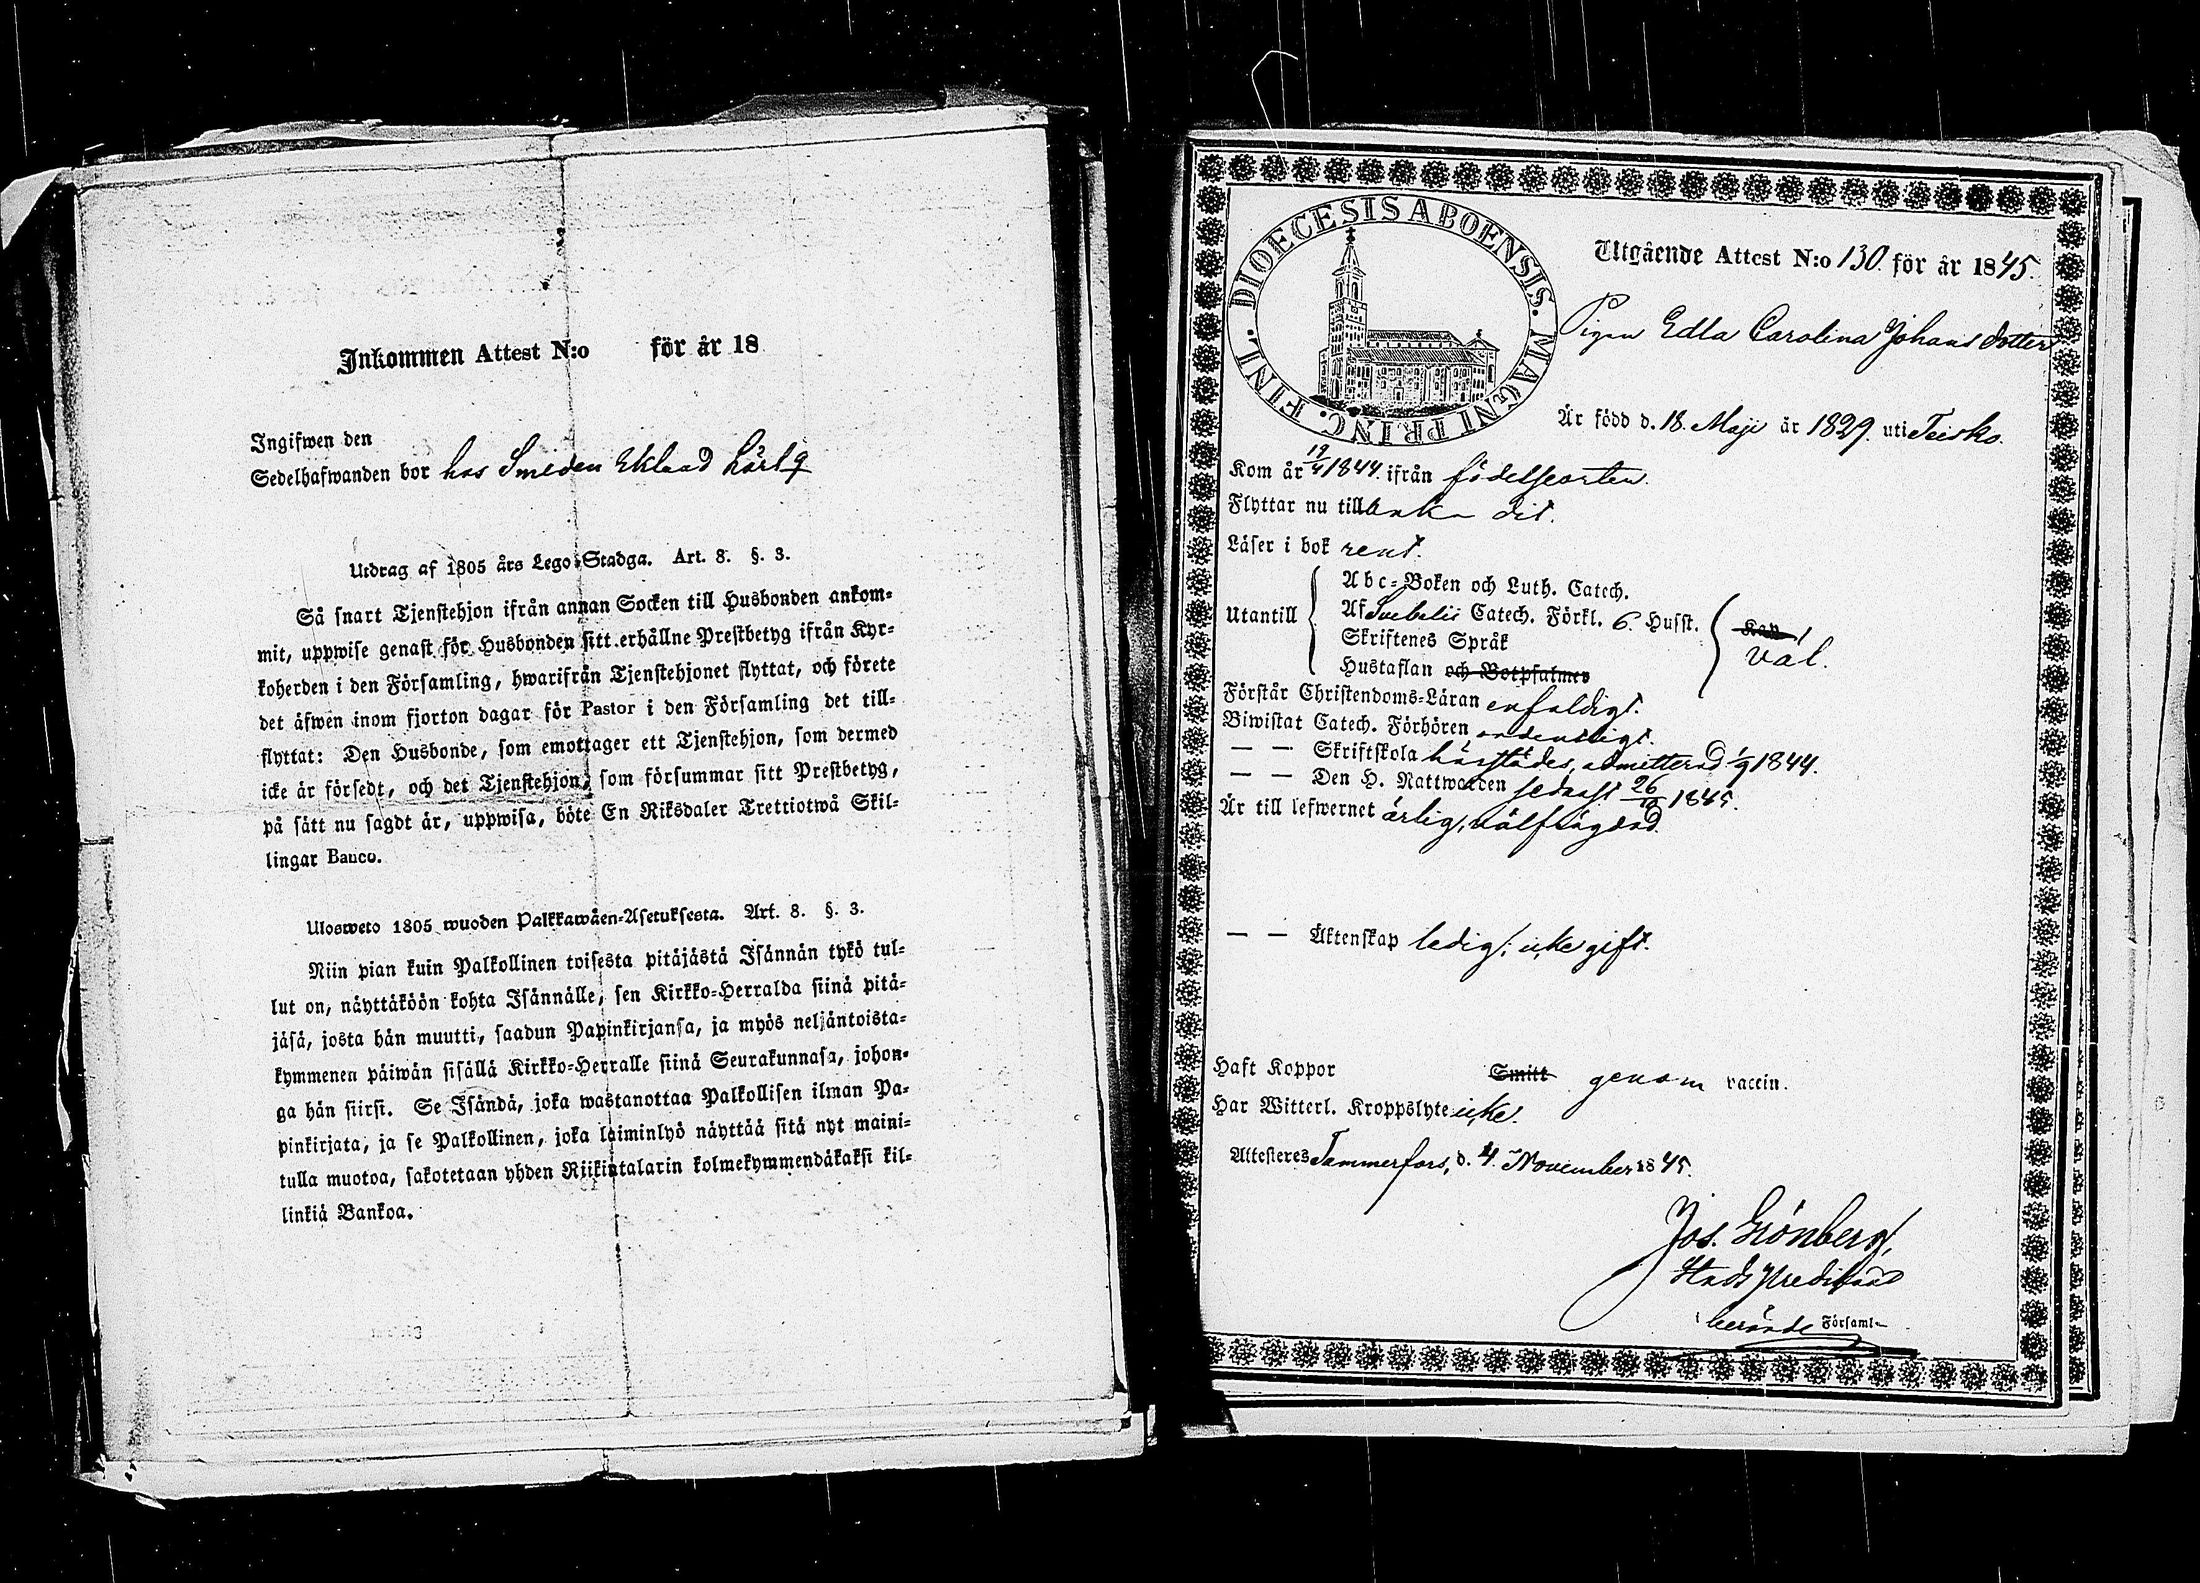 Inkommen Attest N:o för år 18
Ingifwen den
Sedelhafwanden bor hos Smeden Eklund
Utdrag af 1805 års Lego-Stadga. Art. 8. §. 3.
Så snart Tjenstehjon ifrån annan Socken till Husbonden ankom-
mit, uppwise genast för Husbonden sitt erhållne Prestbetyg ifrån Kyr-
koherden i den Församling, hwarifrån Tjenstehjonet flyttat, och förete
det äfwen inom fjorton dagar för Pastor i den Församling det till-
flyttat: Den Husbonde, som emottager ett Tjenstehjon, som dermed
icke är försedt, och det Tjenstehjon, som försummar sitt Prestbetyg,
på sätt nu sagdt är, uppwisa, böte En Riksdaler Trettiotwå Skil-
lingar Banco.
Ulosweto 1805 wuoden Palkkawäen-Asetuksesta. Art. 8. §. 3.
Niin pian kuin Palkollinen toisesta pitäjästä Isännän tykö tul-
lut on, näyttäköön kohta Isännälle, sen Kirkko-Herralda siinä pitä-
jäsä, josta hän muutti, saadun Papinkirjansa, ja myös neljäntoista-
kymmenen päiwän sisällä Kirkko-Herralle siinä Seurakunnasa, johon-
ga hän siirsi. Se Isändä, joka wastanottaa Palkollisen ilman Pa-
pinkirjata, ja se Palkollinen, joka laiminlyö näyttää sitä nyt maini-
tulla muotoa, sakotetaan yhden Riikintalarin kolmekymmendäkaksi kil-
linkiä Bankoa.
DIOECESIS ABOENSIS. MAGNI PRINC. FINL.
Utgående Attest N:o 130. för år 1845.
Pigan Edla Carolina Johansdotter
Är född d. 18. Maji år 1829. uti Teisko.
Kom år 19/4 1844. ifrån födelseorten.
Flyttar nu tillbaka dit.
Läser i bok rent.
Utantill
Abc-Boken och Luth. Catech.
Af Svebelii Catech. Förkl. 6. Husst.
Skriftenes Språk
Hustaflan och Botpsalmer
Kan
väl.
Förstår Christendoms-Läran enfaldigt.
Biwistat Catech. Förhören ordentligt.
— — Skriftskola härstädes, admitterad 1/9 1844.
— — Den H. Nattwarden sednast 26/10 1845.
Är till lefwernet ärlig, välfrägdad.
— — Äktenskap ledig; icke gift.
Haft Koppor Smitt genom vaccin.
Har Witterl. Kroppslyte icke.
Attesteres Tammerfors, d. 4. November 1845.
Jos. Grönberg,
Stads Predikant
berörde Församl-